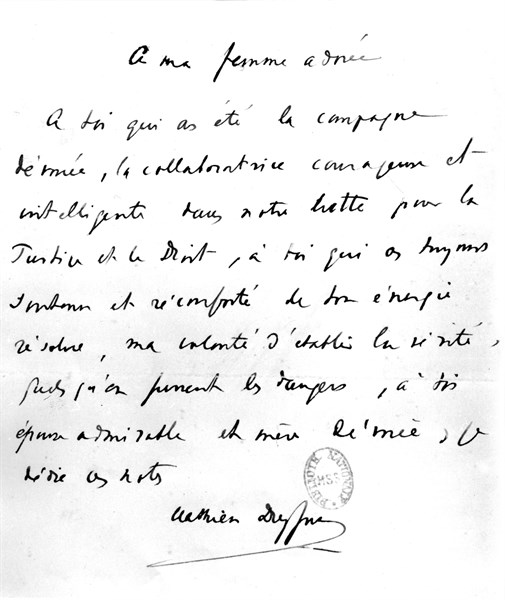 A ma femme adorée
A toi qui as été la compagne
dévouée, la collaboratrice courageuse et
intelligente dans notre lutte pour la
Justice et le Droit, à toi qui as toujours
soutenu et réconforté de ton énergie
résolue, ma volonté d'établir la vérité,
quels qu'en fussent les dangers, à toi
épouse admirable et mère dévouée, je
dédie ces notes
Mathieu Dreyfus
BIBLIOTH. NATIONALE
MSS